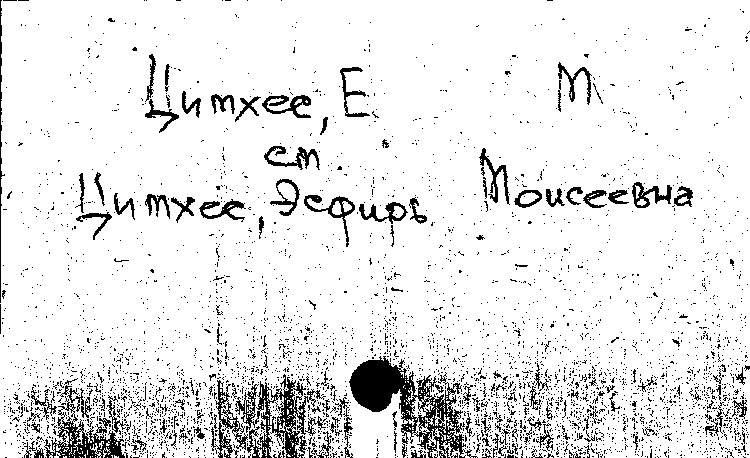 Цитхес, Е М
см.
Цитхес, Эсфирь Моисеевна